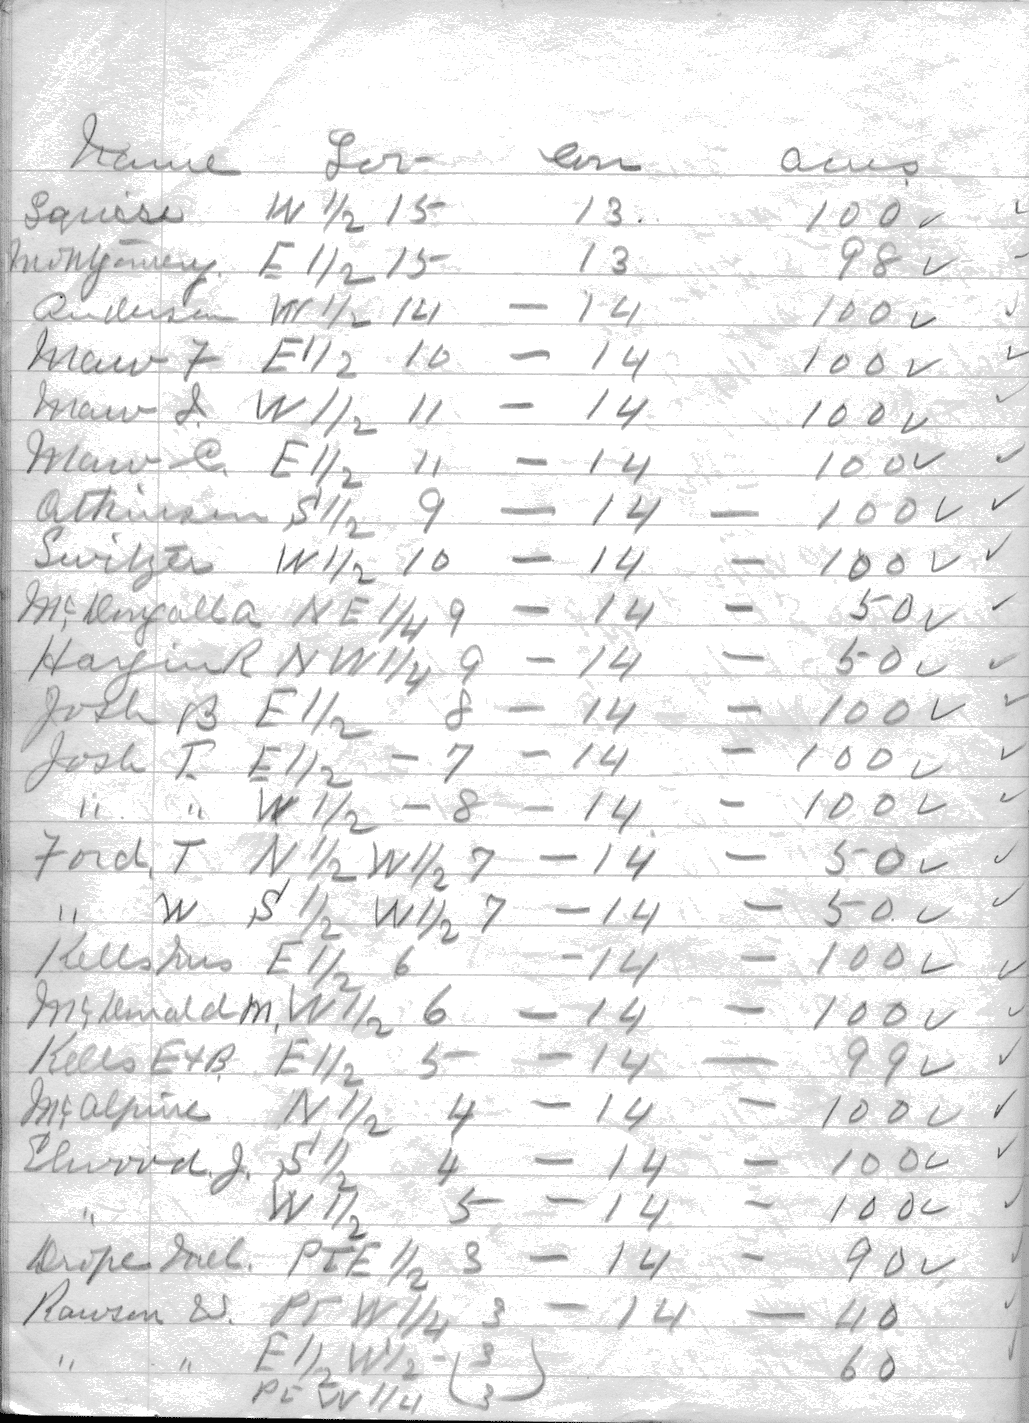 Name Lot Con Acres
Squires W 1/2 15 13. 100 ✓ ✓
Montgomery. E 1/2 15 13 98 ✓ -
Anderson W 1/2 14 — 14 100 ✓ ✓
Maw F E 1/2 10 — 14 100 ✓ ✓
Maw J. W 1/2 11 — 14 100 ✓ ✓
Maw C. E 1/2 11 — 14 100 ✓ ✓
Atkinson S 1/2 9 — 14 — 100 ✓ ✓
Switzer W 1/2 10 — 14 — 100 ✓ ✓
McDougall A N E 1/4 9 — 14 — 50 ✓ ✓
R N W 1/4 9 — 14 — 50 ✓ ✓
Josh B E 1/2 8 — 14 — 100 ✓ ✓
Josh T. E 1/2 — 7 — 14 — 100 ✓ ✓
" " W 1/2 — 8 — 14 — 100 ✓ ✓
Ford, T N 1/2 W 1/2 7 — 14 — 50 ✓ ✓
" W S 1/2 W 1/2 7 — 14 — 50. ✓ ✓
Kells E 1/2 6 — 14 — 100 ✓ ✓
McDonald M, W 1/2 6 — 14 — 100 ✓ ✓
Kells E + B. E 1/2 5 — 14 — 99 ✓ ✓
McAlpine N 1/2 4 — 14 — 100 ✓ ✓
Elwood. J. S 1/2 4 — 14 — 100 ✓ ✓
" W 1/2 5 — 14 — 100 ✓ ✓
Drope Pt E 1/2 3 — 14 — 90 ✓ ✓
Rawson W. Pt W 1/4 3 — 14 — 40 ✓
" " E 1/2 W 1/2 - (3 60
Pt W 1/4 3)